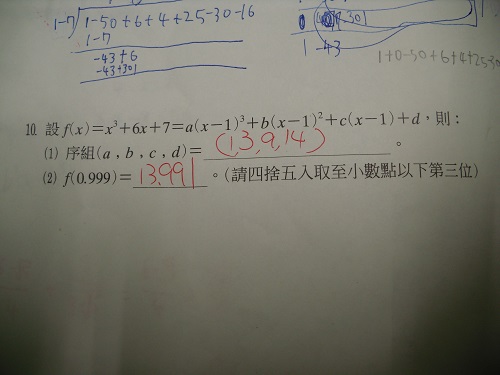 1-7 1-50+6+4+25-30-16
1-7
-43+6
-43+301
1 -43
1+0-50+6+4+25-30
10. 設 f(x)=x³+6x+7=a(x-1)³+b(x-1)²+c(x-1)+d,則:
(1) 序組(a,b,c,d)= (1,3,9,14) 。
(2) f(0.999)= 13.991 。(請四捨五入取至小數點以下第三位)